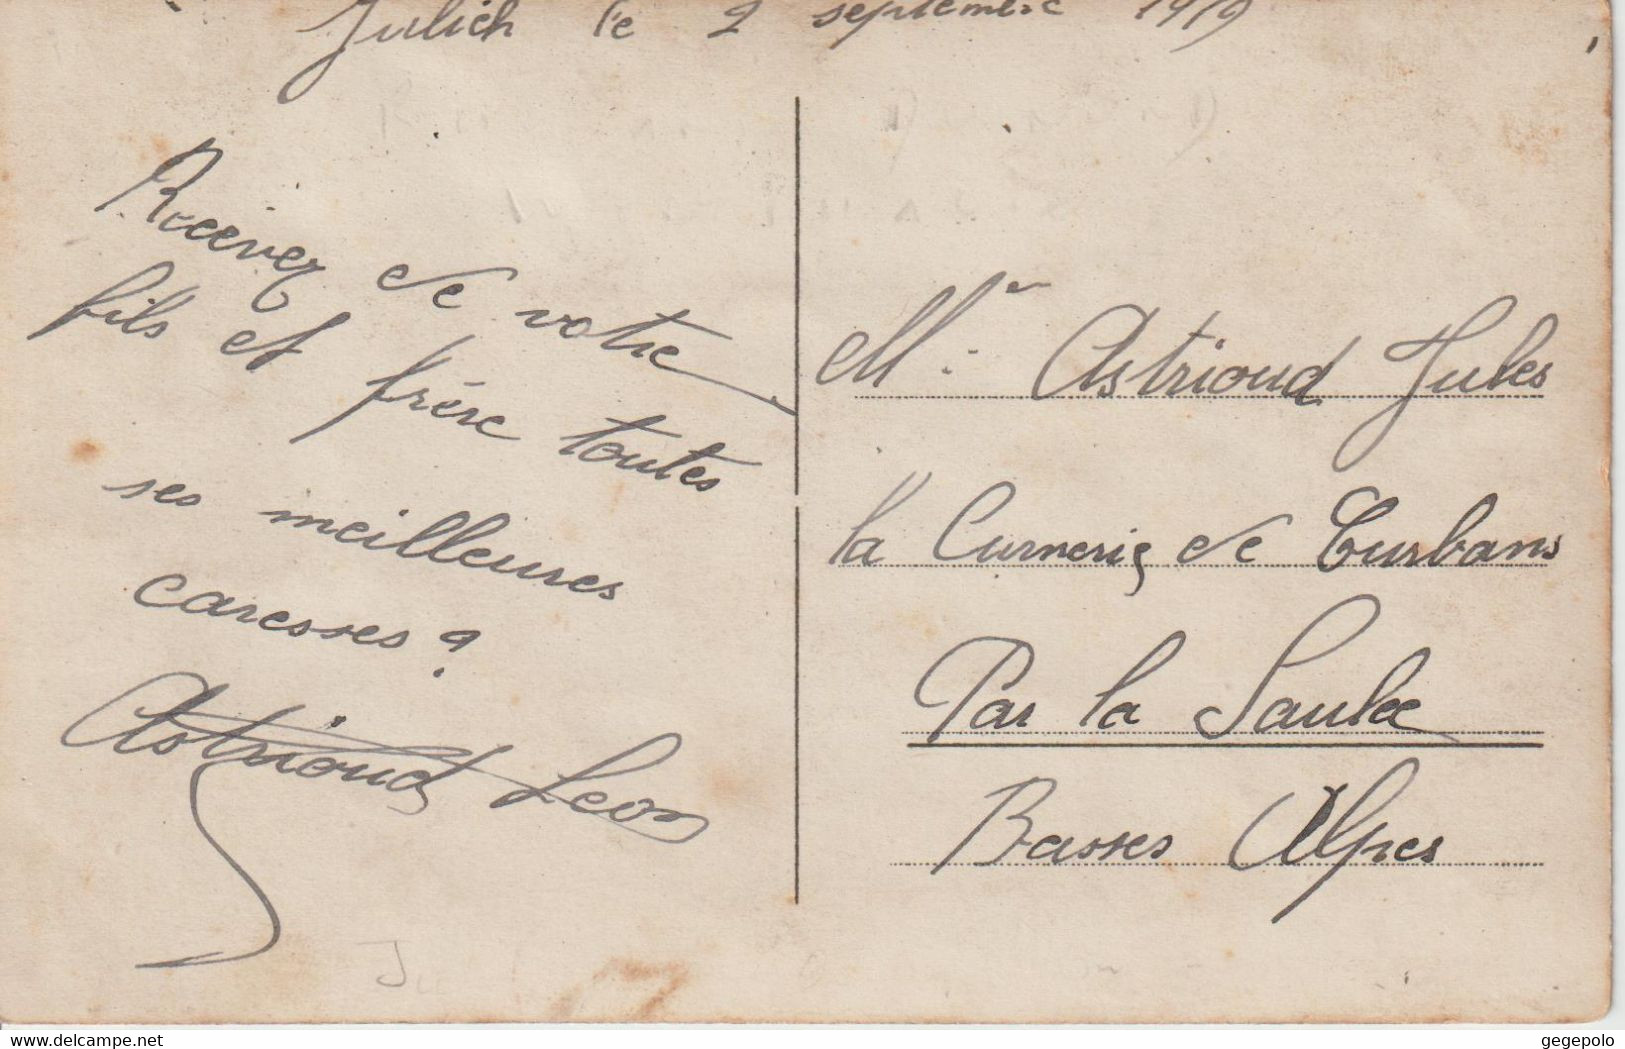 Julich le 2 septembre 1919
Recevez de votre
fils et frére toutes
ses meilleures
caresses ?
Astrioud Leon
Mr Astrioud Jules
la Curnerie de Curbans
Par la Saulce
Basses Alpes
delcampe.net
gegepolo